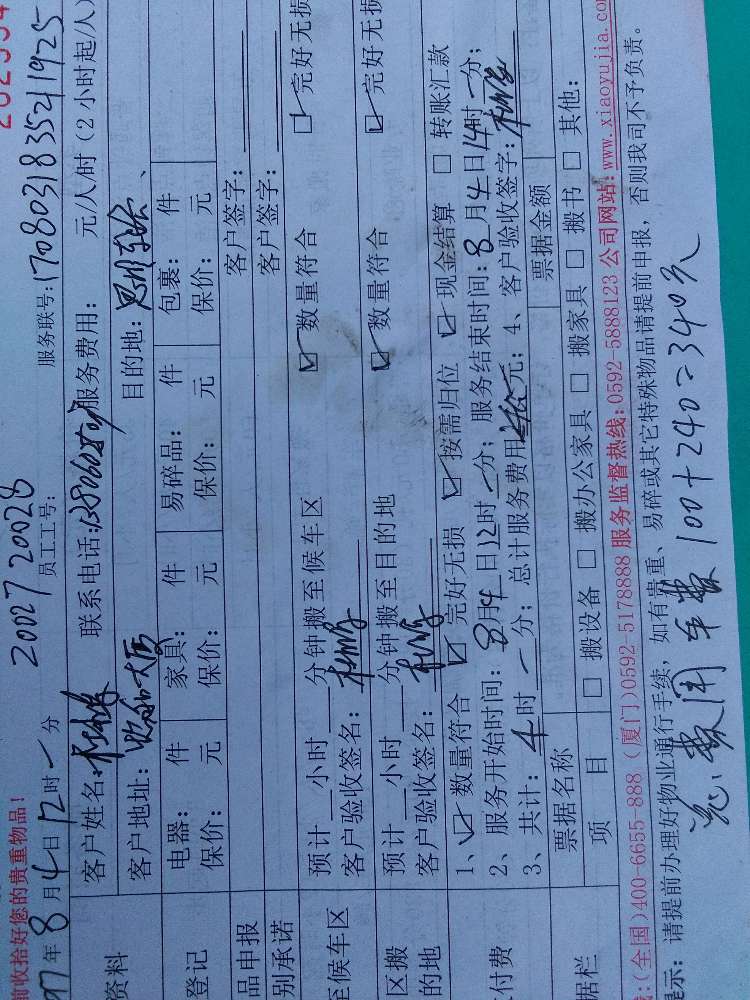 卸收拾好您的贵重物品！ 20027 20028
年8月4日12时一分 员工工号： 服务联号：1708031835211925
资料 客户姓名： 联系电话： 服务费用： 元/人/时（2小时起/人）
客户地址： 目的地：
登记 电器： 件 家具： 件 易碎品： 件 包裹： 件
保价： 元 保价： 元 保价： 元 保价： 元
品申报 客户签字：
别承诺 客户签字：
至候车区 预计__小时__分钟搬至候车区 ☑数量符合 ☑完好无损
客户验收签名：
区搬 预计__小时__分钟搬至目的地 ☑数量符合 ☑完好无损
的地 客户验收签名：
1、☑数量符合 ☑完好无损 ☑按需归位 ☑现金结算 □转账汇款
付费 2、服务开始时间：8月4日12时一分；服务结束时间：8月4日14时一分；
3、共计：4时一分；总计服务费用 元；4、客户验收签字：
据栏 票据名称 票据金额
项目 □搬设备 □搬办公家具 □搬家具 □搬书 □其他：
：(全国)400-6655-888 (厦门)0592-5178888 服务监督热线:0592-5888123 公司网站:www.xiaoyujia.co
示：请提前办理好物业通行手续，如有贵重、易碎或其它特殊物品请提前申报，否则我司不予负责。
总费用 车费 100+240=340元